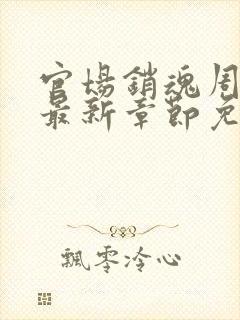 官場銷魂周
最新章節免
飄零冷心